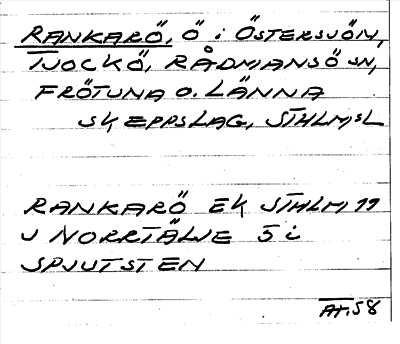 RANKARÖ, Ö i ÖSTERSJÖN,
TJOCKÖ, RÅDMANSÖ SN,
FRÖTUNA O. LÄNNA
SKEPPSLAG, STHLM,SL
RANKARÖ EK STHLM 99
J NORRTÄLJE 5 i
SPJUTSTEN
AT.58